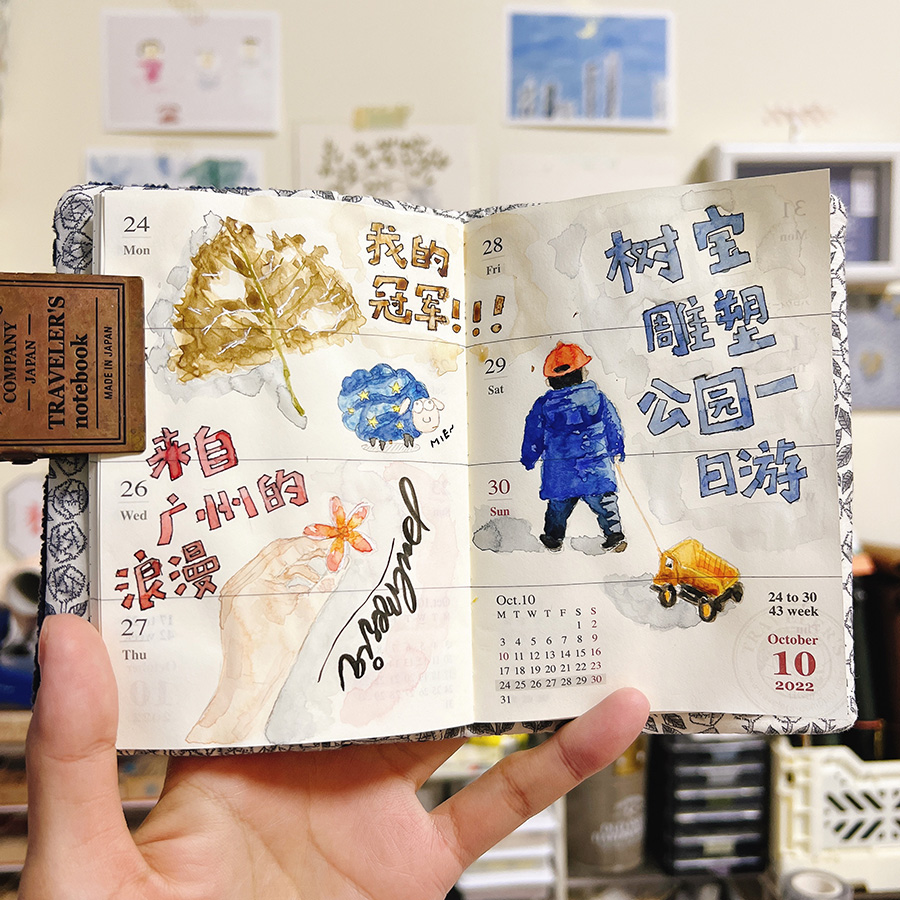 COMPANY
JAPAN
TRAVELER'S
notebook
MADE IN JAPAN
24
Mon
我的
冠军!!!
MIE~
26
Wed
来自
广州的
浪漫
27
Thu
28
Fri
29
Sat
30
Sun
树宝
雕塑
公园一
日游
Oct.10
M T W T F S S
1 2
3 4 5 6 7 8 9
10 11 12 13 14 15 16
17 18 19 20 21 22 23
24 25 26 27 28 29 30
31
24 to 30
43 week
October
10
2022